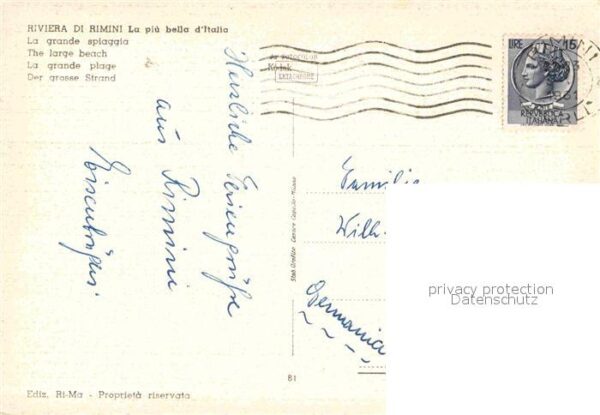 RIVIERA DI RIMINI La più bella d'Italia
La grande spiaggia
The large beach
La grande plage
Der grosse Strand
Kodak
EKTACHROME
LIRE 15
REPVBBLICA
ITALIANA
Herzliche Feriengrüße
aus Rimini
Familie
Wilh.
Germania
privacy protection
Datenschutz
81
Ediz. Ri-Ma - Proprietà riservata